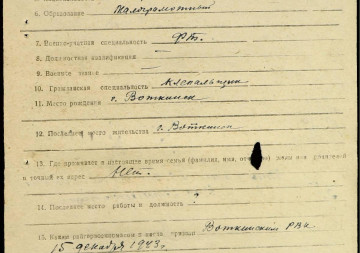 6. Образование Малограмотный
7. Военно-учетная специальность
8. Должностная квалификация
9. Военное звание
10. Гражданская специальность
11. Место рождения г. Воткинск
12. Последнее место жительства г. Воткинск
13. Где проживает в настоящее время семья (фамилия, имя, отчество) жены или родителей
и точный их адрес Нет.
14. Последнее место работы и должность ?
15. Каким райвоенкоматом и когда призван Воткинским РВК
15 декабря 1943 г.